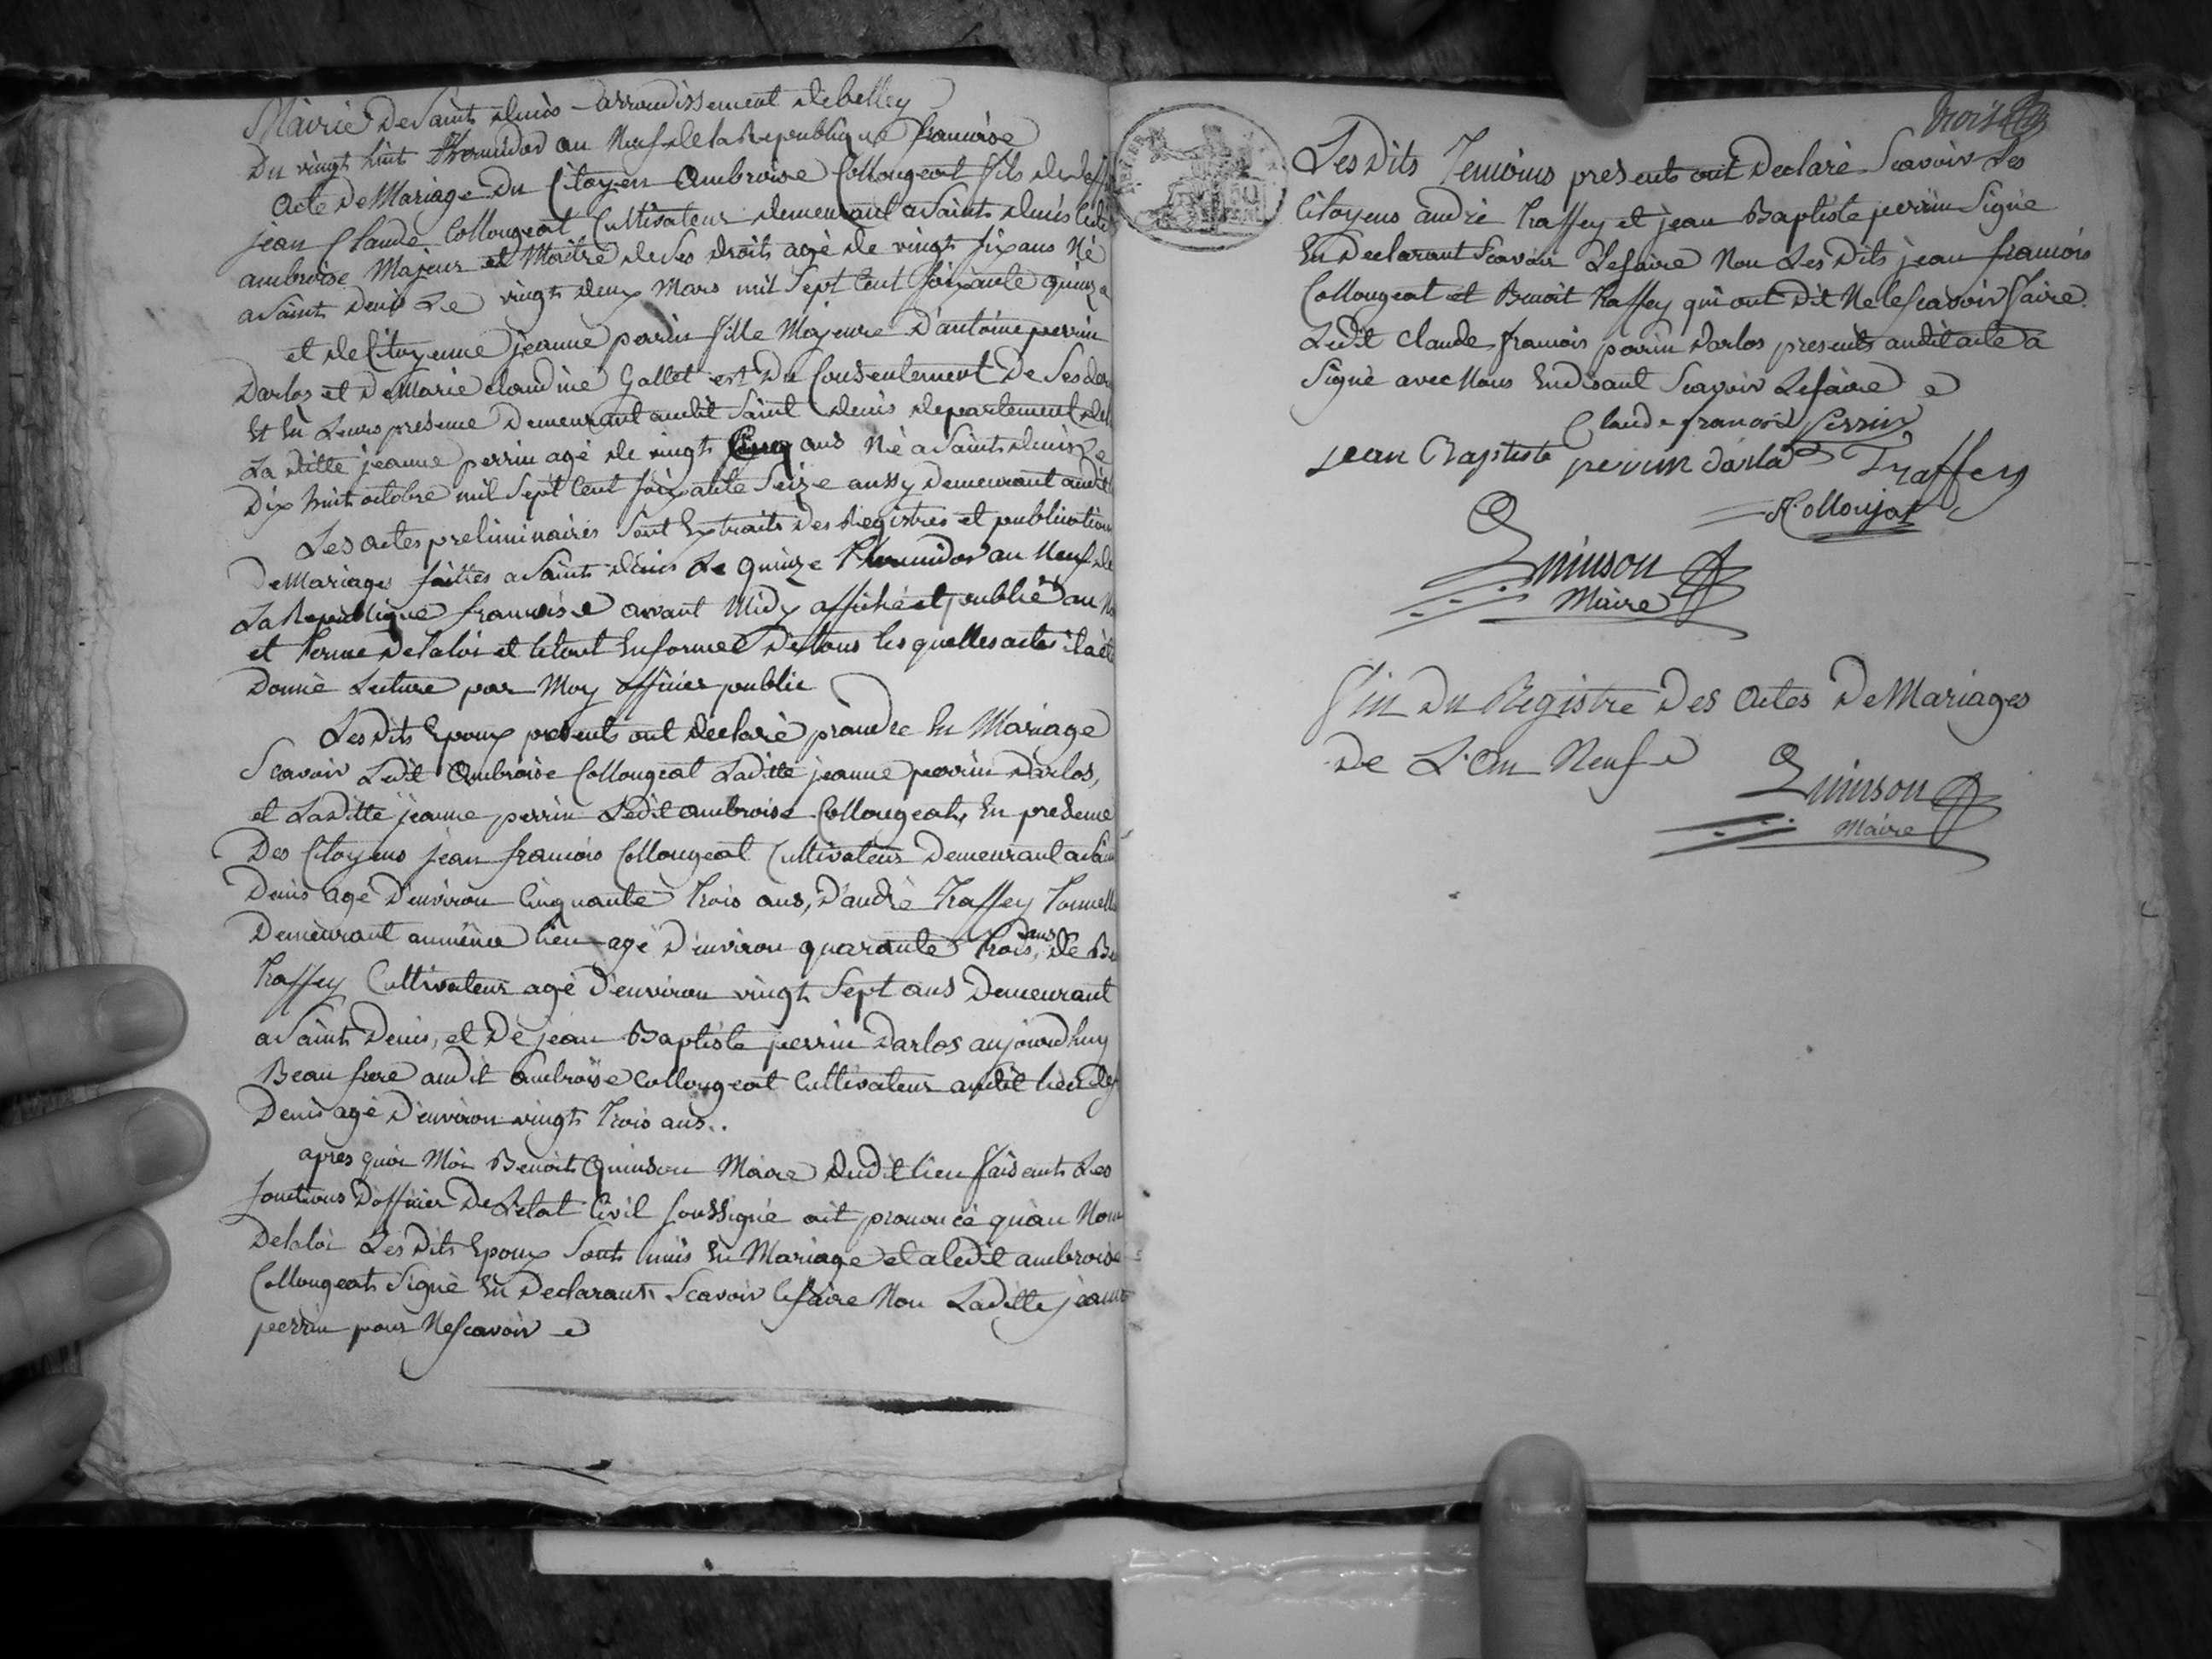 Mairie De Saint denis arrondissement debelley
Du vingt huit thermidor an Neuf de la Republique francoise
Acte De Mariage Du Citoyen Ambroise Collongeat fils de deff
jean Claude Collongeat Cultivateur demeurant a Saint denis ledit
ambroise Majeur et Maitre de Ses droits agé de vingt six ans Né
a Saint Denis Le vingt deux Mars mil Sept Cent Soixante quinze
et de Citoyenne jeanne perrin fille Majeure D'antoine perrin
Darlos et De Marie claudine Gallet est Du Consentement De Ses
Et En Leurs presence Demeurant audit Saint denis departement de
La ditte jeanne perrin agé de vingt cinq ans Né a Saint denis Le
Dix huit octobre mil Sept Cent Soixante Seize aussy Demeurant audit
Les actes preliminaires Sont Extraits Des Registres et publication
De Mariages faittes a Saint denis Le quinze Thermidor an Neuf de
La Republique francoise avant Midy affiché et publié au
et terme De la loi et letout En forme De tous les quelles actes il a été
Donné Lecture par Moy officier public
Les Dits Epoux presents ont declaré prandre En Mariage
Scavoir Ledit Ambroise Collongeat Laditte jeanne perrin Darlos,
et Laditte jeanne perrin Ledit ambroise Collongeat, En presence
Des Citoyens jean francois Collongeat Cultivateur Demeurant a
Denis agé D'environ Cinquante trois ans, D'andré Traffey
Demeurant au même lieu agé D'environ quarante trois ans, de
Traffey Cultivateur agé D'environ vingt Sept ans Demeurant
a Saint Denis, et De jean Baptiste perrin Darlos aujourdhuy
Beau frere audit Ambroise Collongeat Cultivateur audit lieu de
Denis agé D'environ vingt trois ans..
apres quoi Moi Benoit Quinson Maire dudit lieu faisant Les
fonctions D'officier De Letat Civil soussigné ait prononcé qu'au Nom
De la loi Les Dits Epoux Sont unis En Mariage et a ledit ambroise
Collongeat Signé En Declarant Scavoir le faire Non Laditte jeanne
perrin pour Ne scavoir
trois
Les Dits Temoins presents ont Declaré Scavoir Les
Citoyens andré traffey et jean Baptiste perrin Signé
En Declarant Scavoir Le faire Non Les Dits jean francois
Collongeat et Benoit traffey qui ont Dit Ne le scavoir faire
Ledit Claude francois perrin Darlos presents audit acte a
Signé avec Nous En disant Scavoir Le faire
Claude francois Perrin
jean Baptiste perrin darlos Traffey
A. Collonjat
Quinson
Maire
Fin Du Registre Des Actes De Mariages
De L'An Neuf
Quinson
Maire